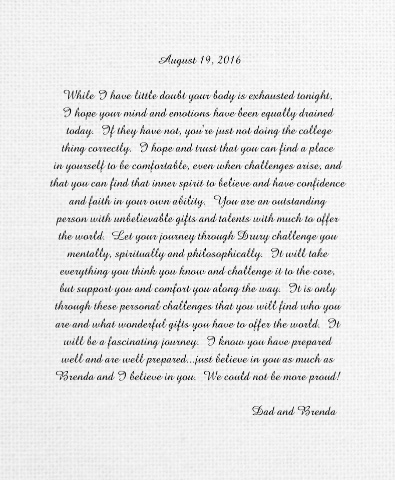 August 19, 2016
While I have little doubt your body is exhausted tonight,
I hope your mind and emotions have been equally drained
today. If they have not, you're just not doing the college
thing correctly. I hope and trust that you can find a place
in yourself to be comfortable, even when challenges arise, and
that you can find that inner spirit to believe and have confidence
and faith in your own ability. You are an outstanding
person with unbelievable gifts and talents with much to offer
the world. Let your journey through Drury challenge you
mentally, spiritually and philosophically. It will take
everything you think you know and challenge it to the core,
but support you and comfort you along the way. It is only
through these personal challenges that you will find who you
are and what wonderful gifts you have to offer the world. It
will be a fascinating journey. I know you have prepared
well and are well prepared...just believe in you as much as
Brenda and I believe in you. We could not be more proud!
Dad and Brenda